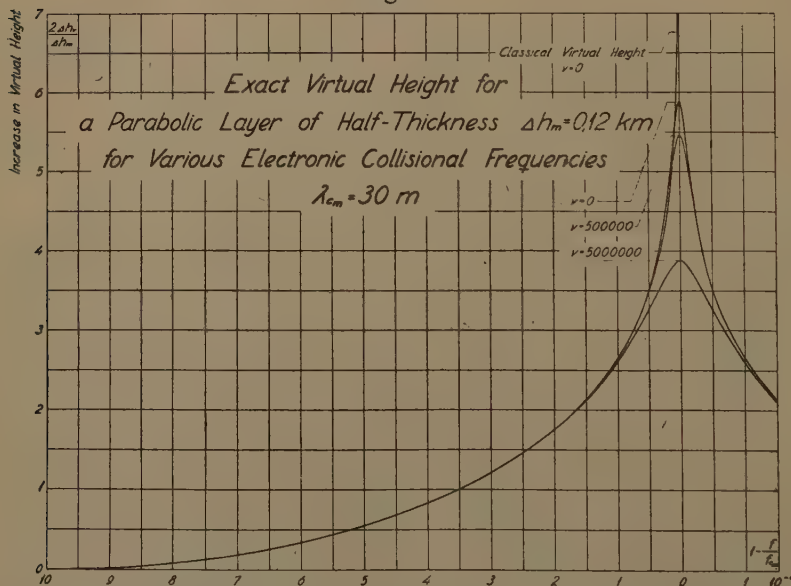 7
2Δhᵥ
Δhₘ
Increase in Virtual Height
Classical Virtual Height
ν=0
Exact Virtual Height for
a Parabolic Layer of Half-Thickness Δhₘ=0,12 km
for Various Electronic Collisional Frequencies
λcₘ=30 m
6
5
ν=0
ν=500000
ν=5000000
4
3
2
1
0
1-f
10 9 8 7 6 5 4 3 2 1 0 1